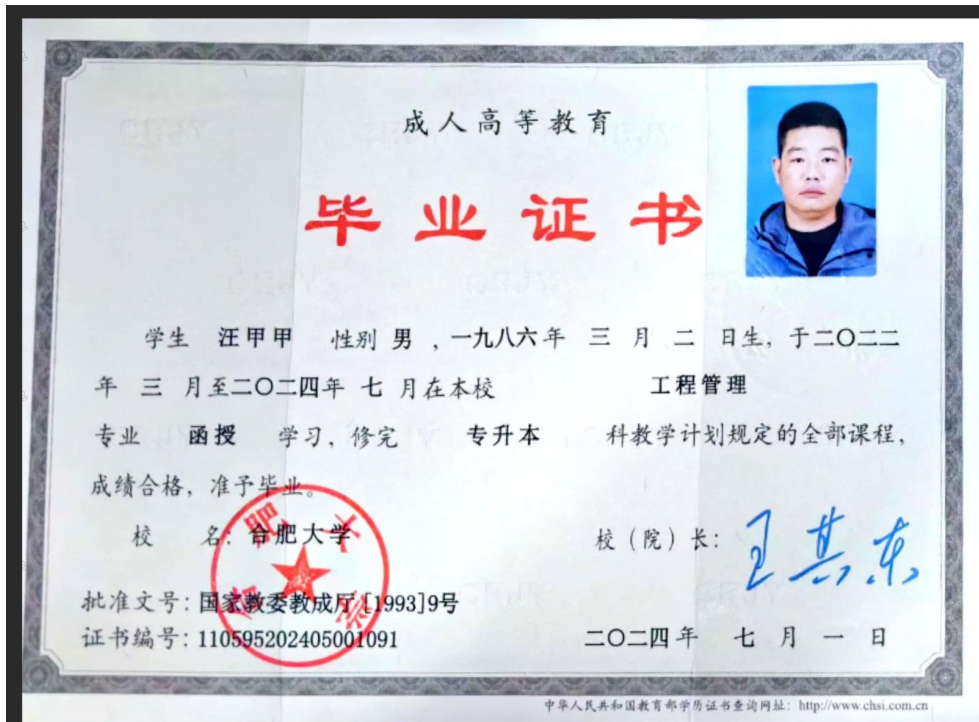 成人高等教育
毕业证书
学生 汪甲甲 性别 男 ，一九八六年 三 月 二 日生，于二〇二二
年 三 月至二〇二四年 七 月在本校 工程管理
专业 函授 学习，修完 专升本 科教学计划规定的全部课程，
成绩合格，准予毕业。
校 名：合肥大学
校（院）长：王其东
批准文号：国家教委教成厅 [1993]9号
证书编号：110595202405001091
二〇二四年 七 月 一 日
合肥大学
中华人民共和国教育部学历证书查询网址：http://www.chsi.com.cn